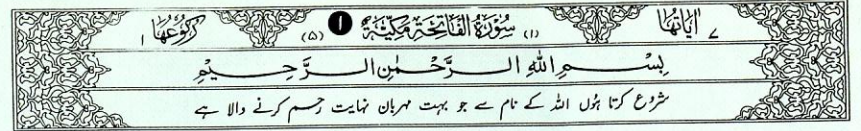 اٰیَاتُهَا ۷ (۱) سُوْرَةُ الْفَاتِحَةِ مَكِّيَّةٌ ۱ (۵) رُكُوْعُهَا ۱
بِسْمِ اللهِ الرَّحْمٰنِ الرَّحِيْمِ
شروع کرتا ہُوں اللہ کے نام سے جو بہت مہربان نہایت رحم کرنے والا ہے